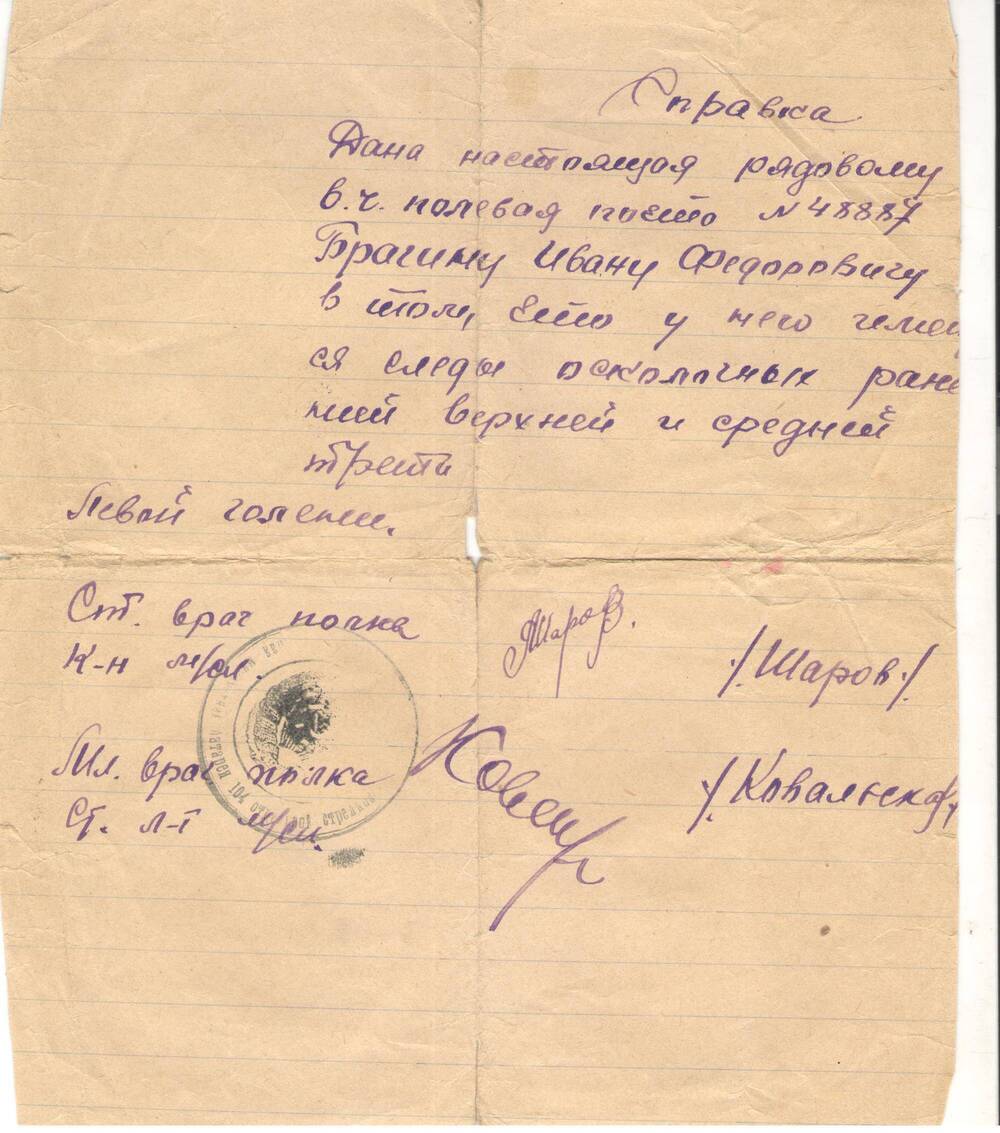 Справка
Дана настоящая рядовому
в.ч. полевая почто N 48887
Брагину Ивану Федоровичу
в том, что у него имею
ся следы осколочных ране
ний верхней и средней
трети
левой голени.
Ст. врач полка
К-н м/сл. Шаров. /Шаров/
Мл. врач полка
Ст. л-т м/сл. /Ковальска